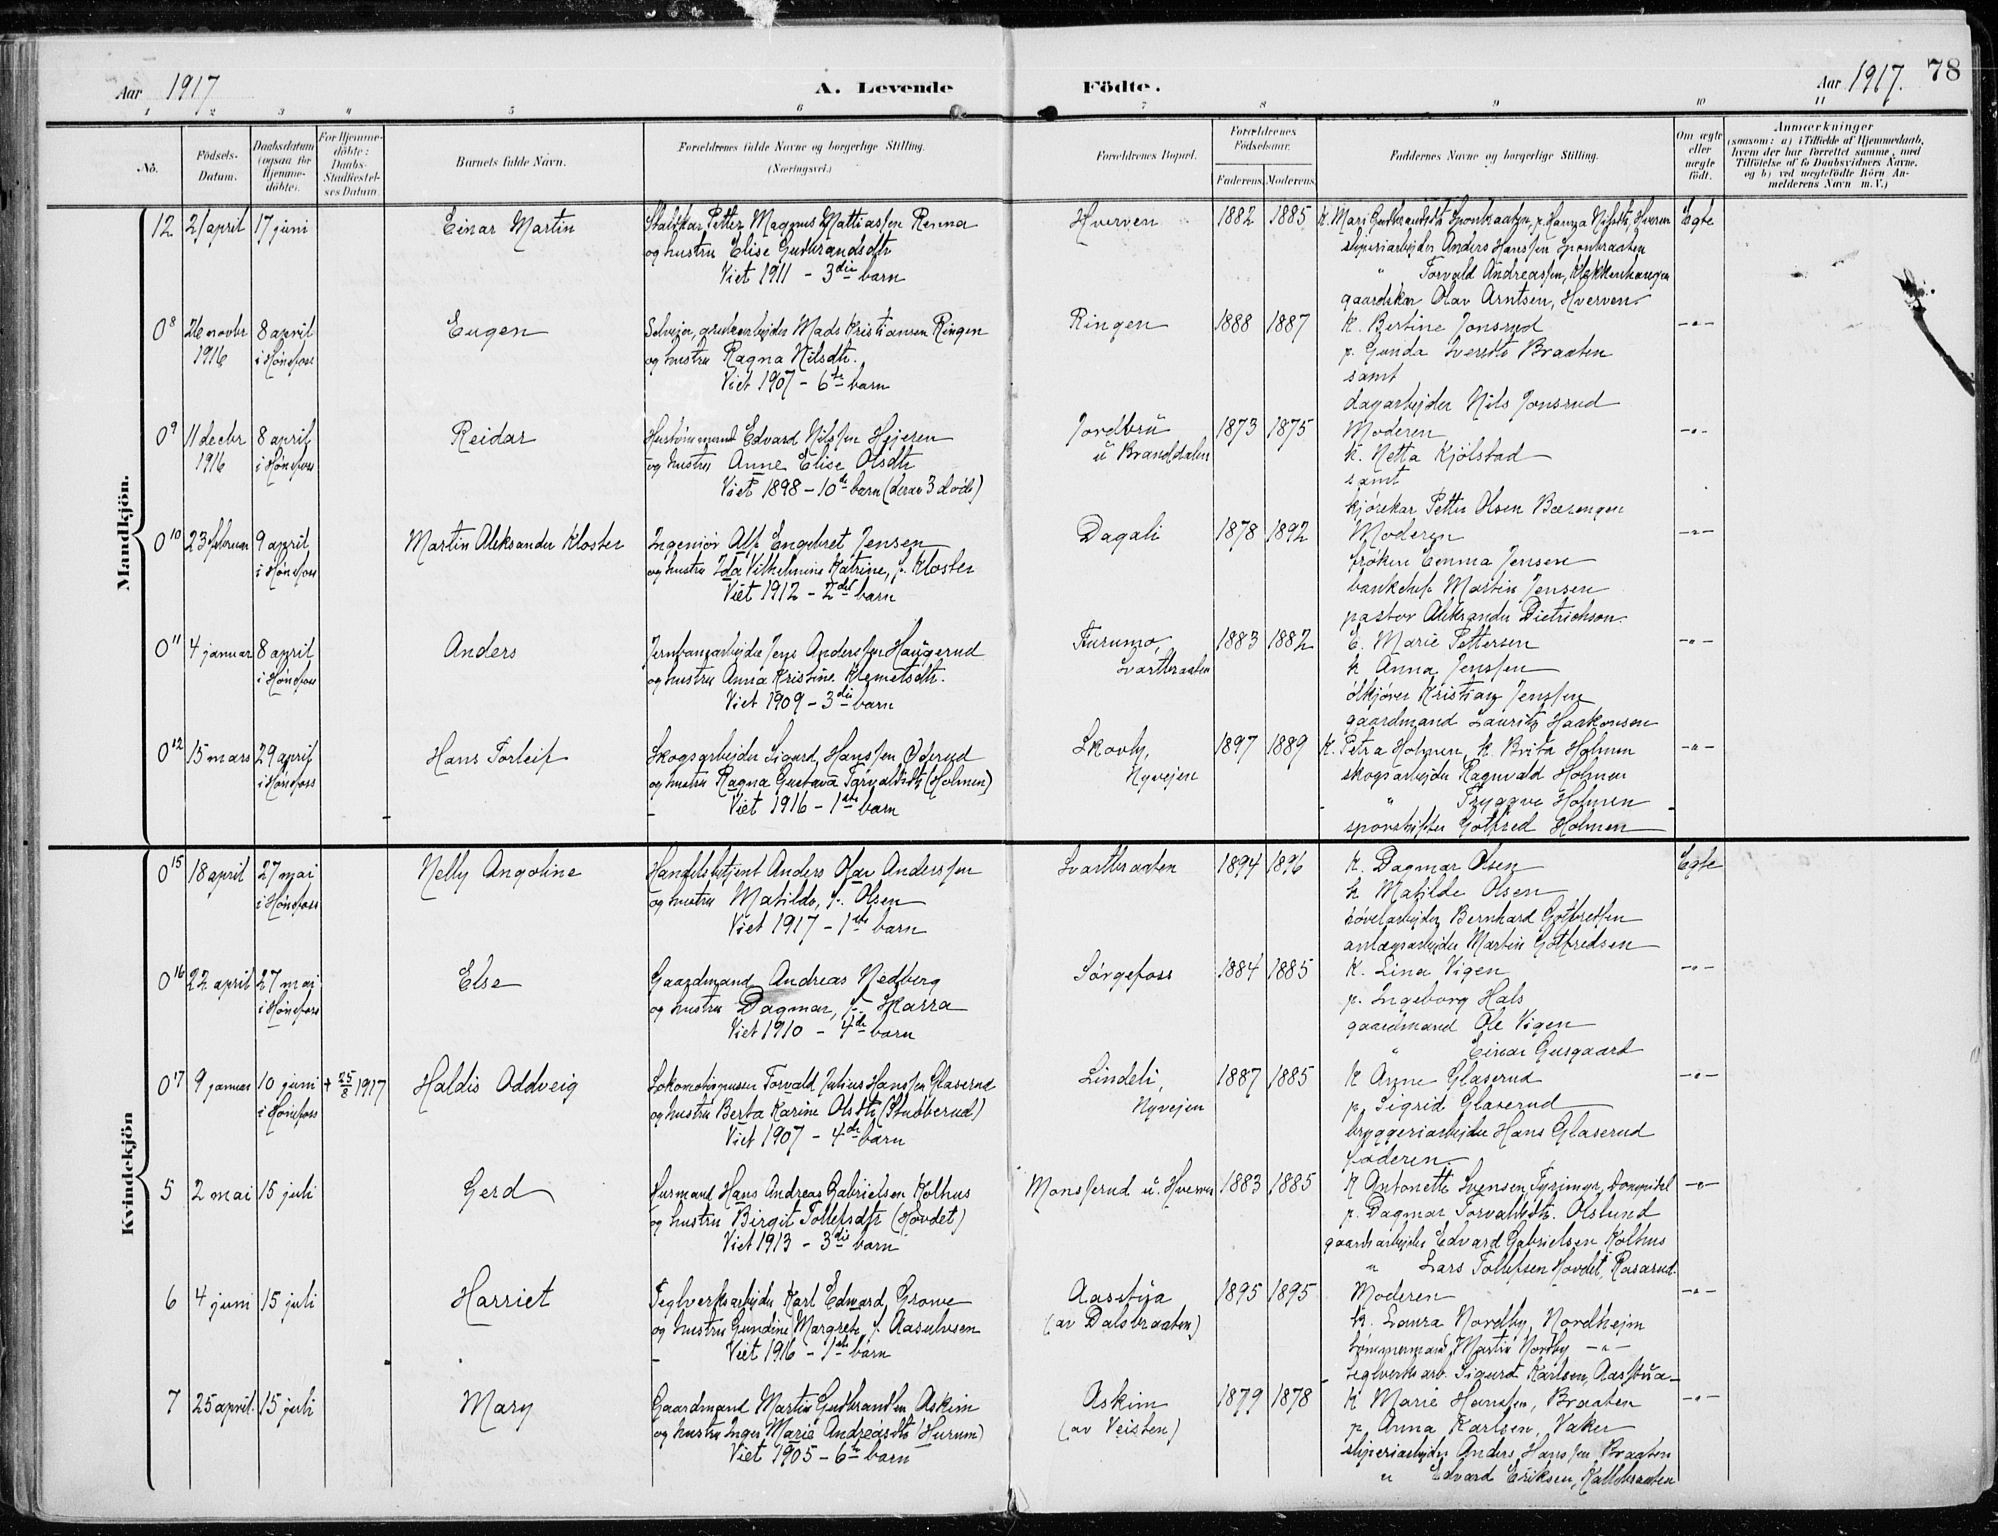 Aar 1917
A. Levende
Födte.
Aar 1917.
78
1 2 3 4 5 6 7 8 9 10 11
No.
Födsels-Datum.
Daabsdatum (ogsaa for Hjemme-döbte).
For Hjemme-döbte: Daabs-Stadfestel-ses Datum
Barnets fulde Navn.
Forældrenes fulde Navne og borgerlige Stilling. (Næringsvei.)
Forældrenes Bopæl.
Forældrenes Födselsaar.
Faderens. Moderens.
Faddernes Navne og borgerlige Stilling.
Om ægte eller uægte födt.
Anmærkninger
(saasom: a) i Tilfælde af Hjemmedaab, hvem der har forrettet samme, med Tilföielse af to Daabsvidners Navne, og b) ved uægtefödte Börn Anmelderens Navn m. V.)
Mandkjön.
12 21 april 17 juni Einar Martin
Staldkar Petter Magnus Mathiassen Renna
og hustru Elise Gudbrandsdtr
Viet 1911 - 3die barn
Hverven 1882 1885
K. Mari Gudbrandsdtr p. Hanna Nilsdtr, Hverven Egte
sliperiarbejder Anders Hanssen
" Torvald Andreassen, Klækkenhaugen
gaardskar Olav Arntsen, Hverven
O8 26 novbr 1916 8 april i Hønefoss Eugen
Selvejer, Mads Kristiansen Ringen
og hustru Ragna Nilsdtr.
Viet 1907 - 6te barn
Ringen 1888 1887
K. Bertine Jonsrud -"-
p. Gunda Braaten
samt
dagarbejder Nils Jonsrud
O9 11 decbr 1916 8 april i Hønefoss Reidar
Hustømmermand Edvard Nilssen Hjeren
og hustru Anne Elise Olsdtr
Viet 1898 - 10de barn (derav 3 døde)
Jordbru u Branddalen 1873 1875
Moderen -"-
k. Netta Kjølstad
samt
kjørekar Petter Olsen Bærengen
O10 23 februar 9 april i Hønefoss Martin Aleksander Kloster
Ingeniør Alf Engebret Jensen
og hustru Ida Vilhelmine Katrine, f. Kloster
Viet 1912 - 2det barn
Dagali 1878 1892
Moderen -"-
frøken Emma Jensen
bankchef Martin Jensen
pastor Aleksander Dietrichson
O11 4 januar 8 april i Hønefoss Anders
Jernbanearbejder Jens Anderssen Haugerud
og hustru Anna Kristine Klemetsdtr.
Viet 1909 - 3die barn
Furumo, Svartbraaten 1883 1882
E. Marie Pettersen -"-
k Anna Jenssen
ølkjører Kristian Jenssen
gaardmand Lauritz Haakonsen
O12 15 mars 29 april i Hønefoss Hans Torleif
Skogsarbejder Sigurd Hanssen Øderud
og hustru Ragna Gustava Torvaldsdtr (Holmen)
Viet 1916 - 1ste barn
Skovly, Nyvejen 1897 1889
K. Petra Holmen, k. Brita Holmen -"-
skogsarbejder Ragnvald Holmen
" Tryggve Holmen
sporskifter Gotfred Holmen
Kvindekjön
O15 18 april 27 mai i Hønefoss Nelly Angoline
Handelsbetjent Anders Olav Anderssen
og hustru Matilde, f. Olsen
Viet 1917 - 1ste barn
Svartbraaten 1894 1896
K. Dagmar Olsen Egte
k Matilde Olsen
Bernhard Gotfredsen
anlægsarbejder Martin Gotfredsen
O16 22 april 27 mai i Hønefoss Else
Gaardmand Andreas Hedberg
og hustru Dagmar, f. Skarra
Viet 1910 - 4de barn
Sørgefoss 1884 1885
K. Lina Vigen -"-
p. Ingeborg Hals
gaardmand Ole Vigen
" Einar Gusgaard
O17 9 januar 10 juni i Hønefoss + 25/8 1917 Haldis Oddveig
Lokomotivpusser Torvald Julius Hanssen Glaserud
og hustru Berta Karine Olsdtr (Stubberud)
Viet 1907 - 4de barn
Lindeli, Nyvejen 1887 1885
K Anne Glaserud -"-
p. Sigrid Glaserud
bryggeriarbejder Hans Glaserud
faderen
5 2 mai 15 juli Gerd
Husmand Hans Andreas Gabrielsen Kolhus
og hustru Birgit Tollefsdtr (Hovdet)
Viet 1913 - 3die barn
Monsserud u. Hverven 1883 1885
K Antonette Svensen -"-
p. Dagmar Torvaldsdtr. Olslund
gaardsarbejder Edvard Gabrielsen Kolhus
" Lars Tollefsen Hovdet, Rasarud
6 4 juni 15 juli Harriet
Teglverksarbejder Karl Edward Growe
og hustru Gundine Margrete f. Aasulvsen
Viet 1916 - 1ste barn
Aasstua (av Dalsbraaten) 1895 1895
Moderen -"-
k. Laura Nordby, Nordhejm
tømmermand Martin Nordby -"-
teglverksarb. Sigurd Karlsen, Aasstua
7 25 april 15 juli Mary
Gaardmand Martin Gudbrandsen Askim
og hustru Inger Marie Andreasdtr (Hurum)
Viet 1905 - 6te barn
Askim (av Veisten) 1879 1878
K Marie Hanssen, Braaten -"-
p. Anna Karlsen, Vaker
sliperiarbejder Anders Hanssen Braaten
" Edvard Eriksen, Kallebraaten